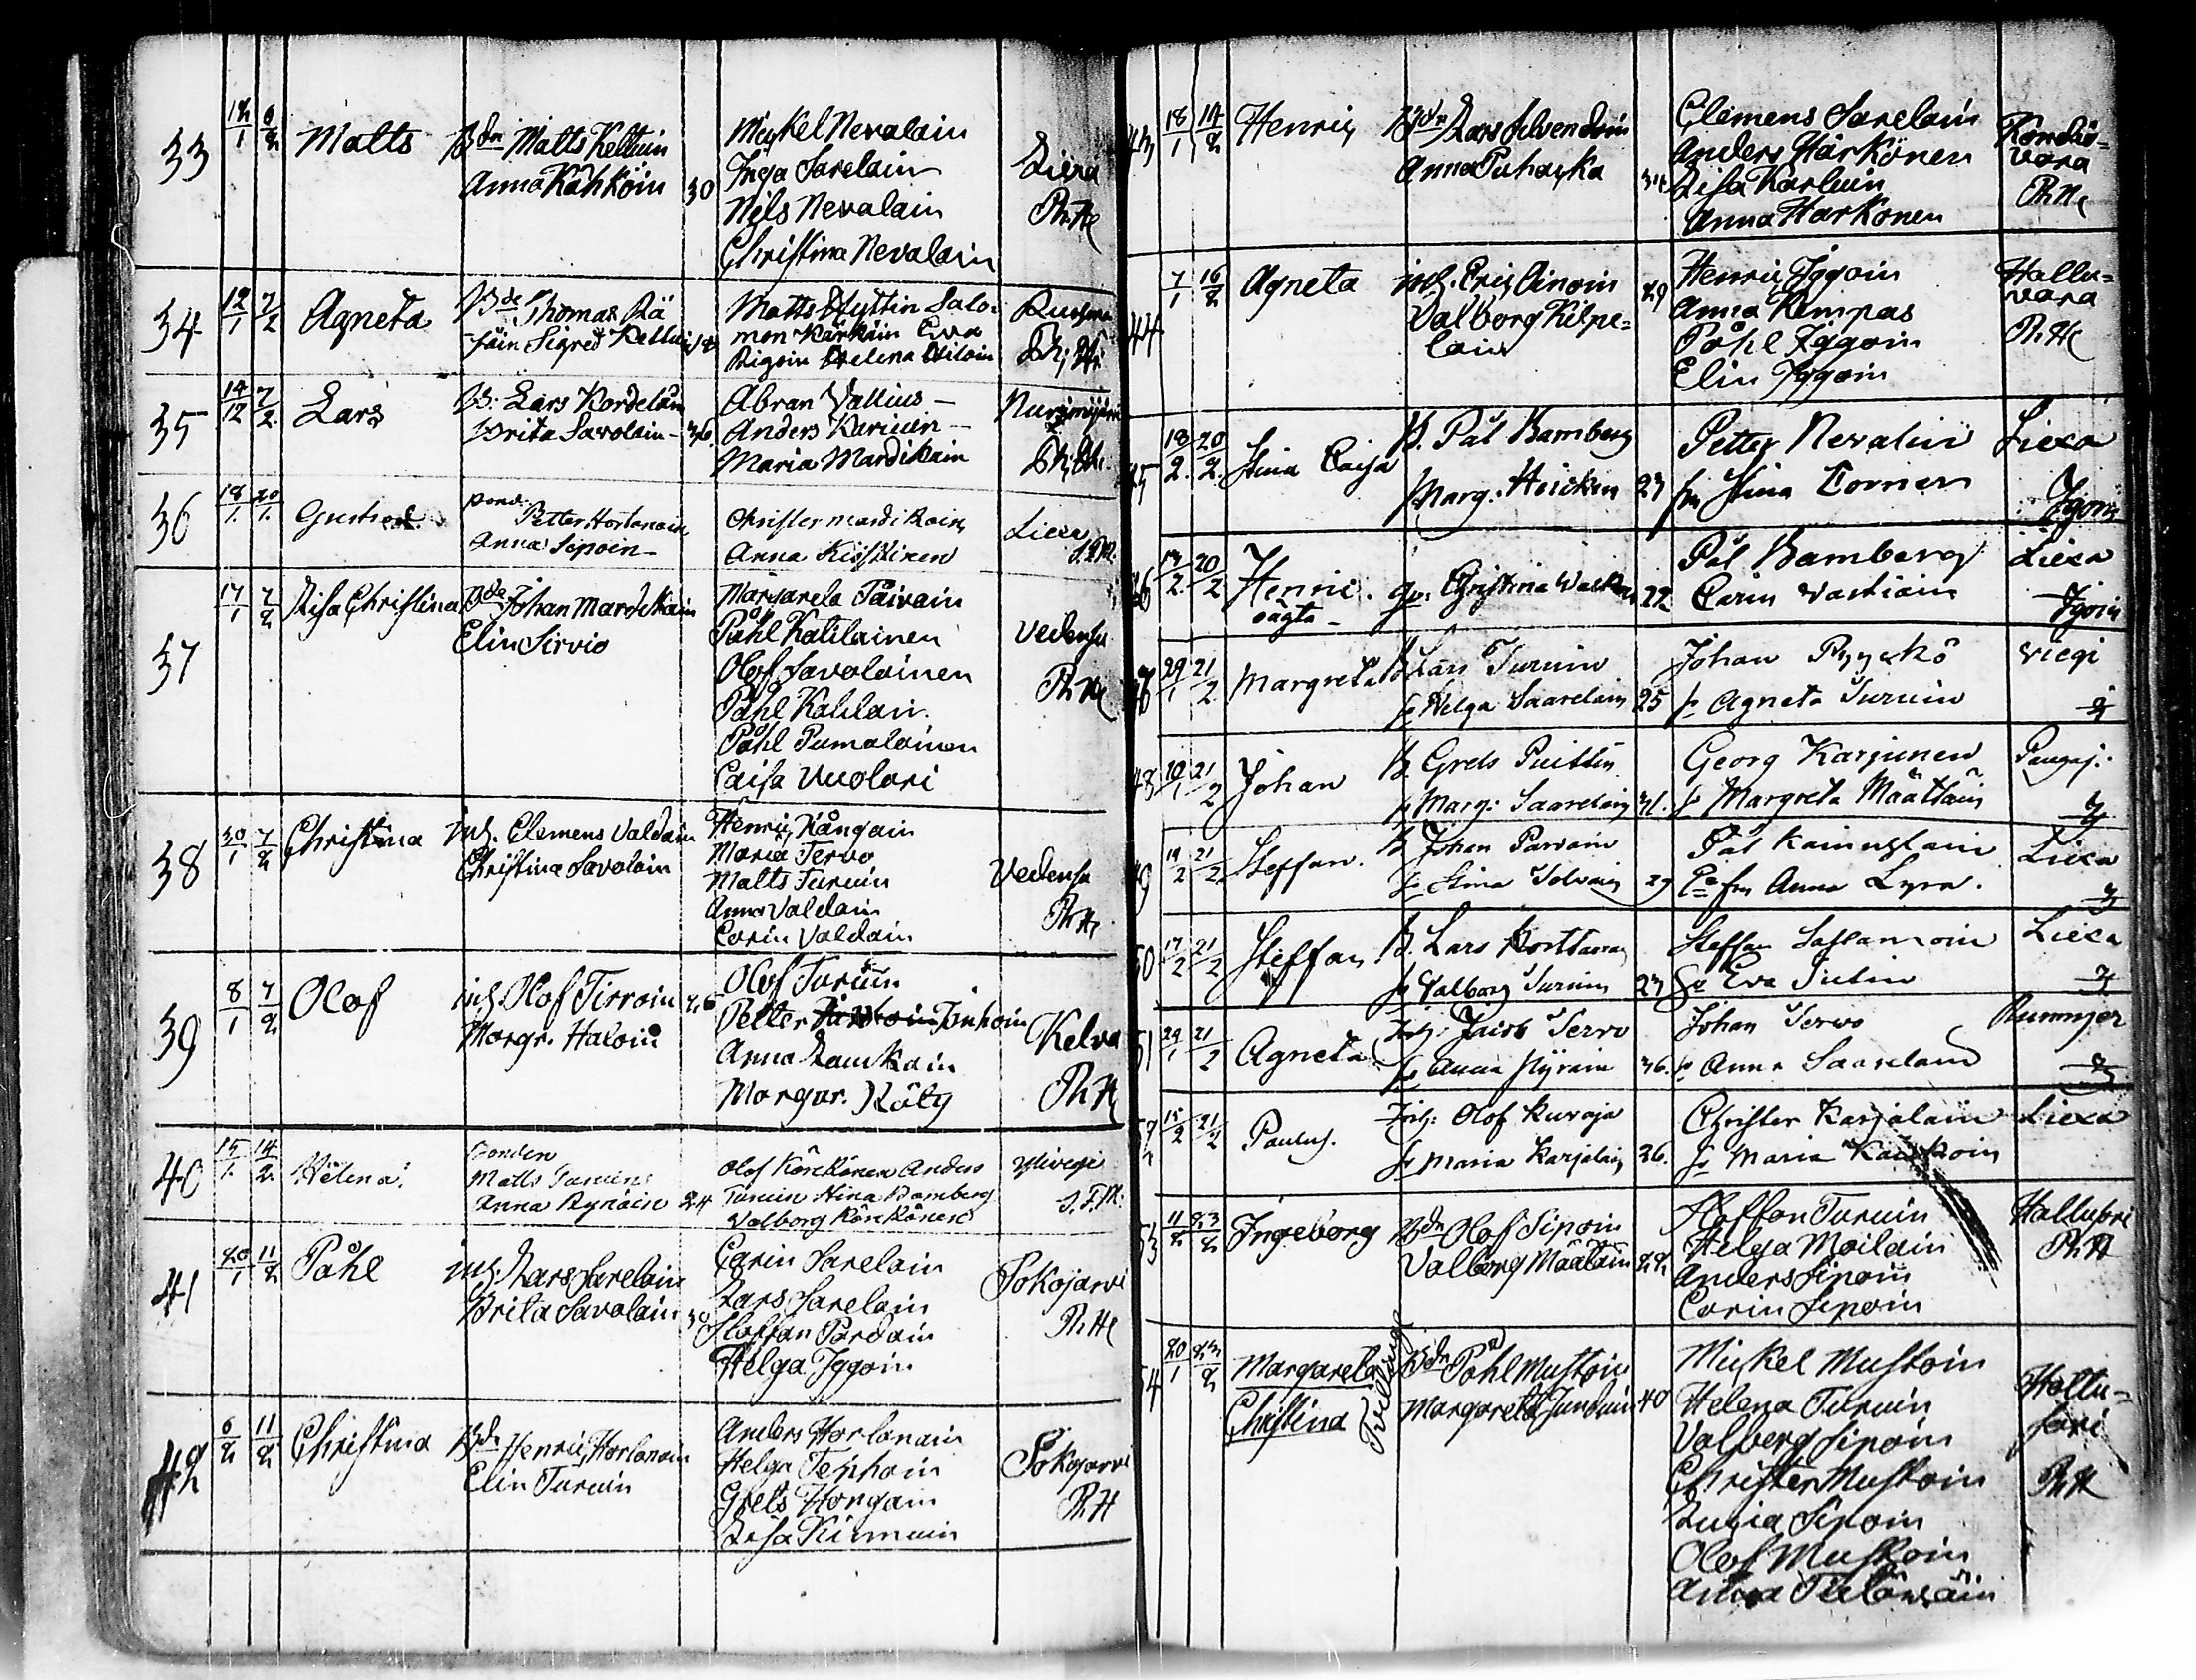 33 18/1 6/2 Matts Bdn Matts Keltuin 
Anna Kåhköin 30
Mickel Nevalain
Inga Sarelain
Nils Nevalain
Christina Nevalain
Liexa
Ph.H
34 12/1 7/2 Agneta Bde Thomas Rä
säin Sigred Keltuin
Matts Hyttin Salo-
mon Kärkäin Eva
Helena
35 14/12 7/2 Lars B. Lars Kordelain
Brita Savolain 36
Abran Vallius
Anders Karjuin
Maria Mardikain
Nurmijärvi
36 18/1 20/1 Gustaf
Petter Hortanain
Anna Sipoin
Christer Mardikain
Anna Kiiskinen
Liexa
37 17/1 7/2 Lisa Christina Bde Johan Mardikain
Elin Sirvio
Margareta Påivain
Påhl Kalilainen
Olof Savolainen
Påhl Kalilain
Påhl Pumalainen
Caisa Vuolari
Vedensu
Ph.H
38 30/1 7/2 Christina inh. Clemens Valdain
Christina Savolain
Henric Kångain
Maria Tervo
Matts Turuin
Anna Valdain
Carin Valdain
Vedensu
Ph.H
39 8/1 7/2 Olof inh. Olof Tirroin 26
Margr. Haloin
Olof Turuin
Petter Tanhoin
Anna Lamkain
Margar. Räty
Kelva
Ph.H
40 15/1 14/2 Helena Bonden
Matts Turuin
Anna Ryñäin 24
Olof Körckönen Anders
Turuin Stina Bamberg
Valborg Körckönen
Yliviegi
S.F.M.
41 20/1 11/2 Påhl inh. Lars Sarelain
Brita Savolain 30
Carin Sarelain
Lars Sarelain
Staffan Pardain
Helga Iggoin
Sokojarvi
Ph.H
42 6/2 11/2 Christina Bdn Henric Hortanain
Elin Turuin
Anders Hortanain
Helga Tenhoin
Grels Hongain
Lisa Kirmuin
Sokojarvi
Ph.H
43 18/1 14/2 Henric Bdn Lars Silvendoin
Anna Puhacka
Clemens Sarelain
Anders Härkönen
Lisa Karluin
Anna Harkonen
Kondio-
vara
Ph.H
44 7/1 16/2 Agneta inh. Eric Ainoin 29
Valborg Kilpe-
lain
Henric Iggoin
Anna Kempas
Påhl Iggoin
Elin Iggoin
Hallu-
vara
Ph.H
45 18/2 20/2 Stina Caisa B. Pål Bamberg
Marg: Hoickin 27
Petter Nevalin
fru Stina Corner
Liexa
Igoni
46 17/2 20/2 Henric
oägta
qv. Christina 22
Pål Bamberg
Carin Vartiain
Liexa
Igoni
29/1 21/2 Margreta B. Lars Turuin
h. Helga Saarelain 25
Johan Ryyckö
h. Agneta Turuin
Viegi
48 10/1 21/2 Johan B. Grels Puittin
h. Marg: Saarelain 31.
Georg Karjunen
h. Margreta Määttäin
Pangaj:
49 14/2 21/2 Steffan. B. Johan Parvain
h. Stina Tolvain 29
Pål Kainulain
fru Anna Lyra.
Liexa
50 17/2 21/2 Steffan B. Lars Korttanain
h. Valborg Turuin 27
Steffan
h. Eva Putin
Liexa
51 29/1 21/2 Agneta Inh: Jacob Tervo
h. Anna Pyrain 36.
Johan Tervo
h. Anna Saarelain
52 15/2 21/2 Paulus. Inh: Olof Kuraja
h. Maria Karjalain 26.
Christer Karjalain
h. Maria
Liexa
53 11/2 23/2 Ingeborg Bdn Olof Sipoin
Valborg Määtäin 22
Staffan Turuin
Helga Moilain
Anders Sipoin
Carin Sipoin
Hallusari
Ph.H
54 20/1 23/2 Margareta
Christina
Tvillingar
Bdn Påhl Mustoin
Margareta Junduin 40
Mickel Mustoin
Helena Turuin
Valborg Sipoin
Christer Mustoin
Luzia Sipoin
Olof Mustoin
Anna
Hallu-
sari
Ph.H